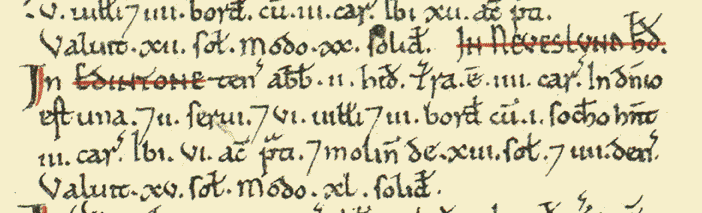 v. uilli ⁊ iiii. bord̄. cū. iii. car̃. Ibi xii. ac̄ p̃ti.
Valuit. xii. sol̃. Modo. xx. solid̃. IN NEVESLVND HD̃.
In EDINTONE ten̄ abb̄. ii. hid̃. T̃ra. ē. iiii. car̃. In dn̄io
est una. ⁊ ii. serui. ⁊ vi. uilli ⁊ iii. bord̄ cū. i. socħo hn̄t
iii. car̃. Ibi. vi. ac̄ p̃ti. ⁊ molin̄ de. xiii. sol̃. ⁊ iiii. den̄.
Valuit. xv. sol̃. Modo. xl. solid̃.